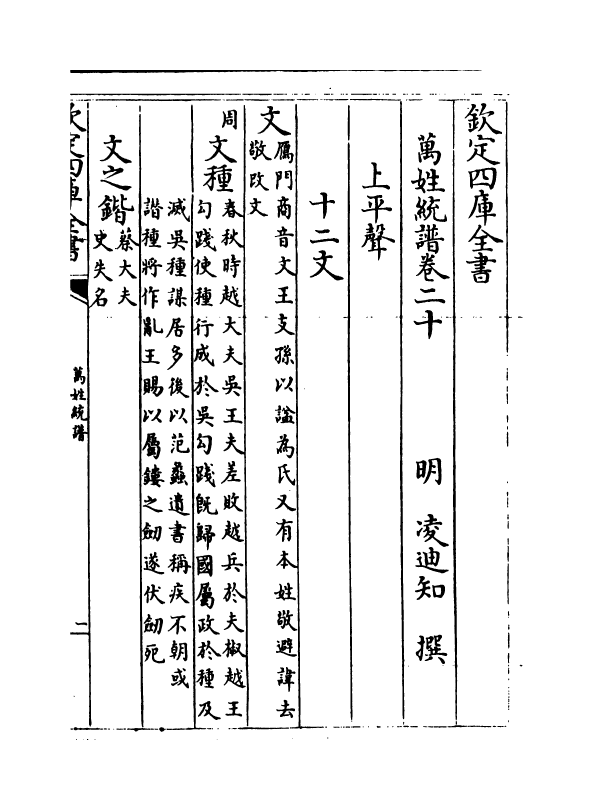 欽定四庫全書
萬姓統譜卷二十
明 凌迪知 撰
上平聲
十二文
文
鴈門商音文王支孫以謚為氏又有本姓敬避諱去
敬改文
周
文種
春秋時越大夫吳王夫差敗越兵於夫椒越王
勾踐使種行成於吳勾踐既歸國屬政於種及
滅吳種謀居多後以范蠡遺書稱疾不朝或
譖種將作亂王賜以屬鏤之劍遂伏劍死
文之鍇
蔡大夫
史失名
欽定四庫全書
萬姓統譜
二